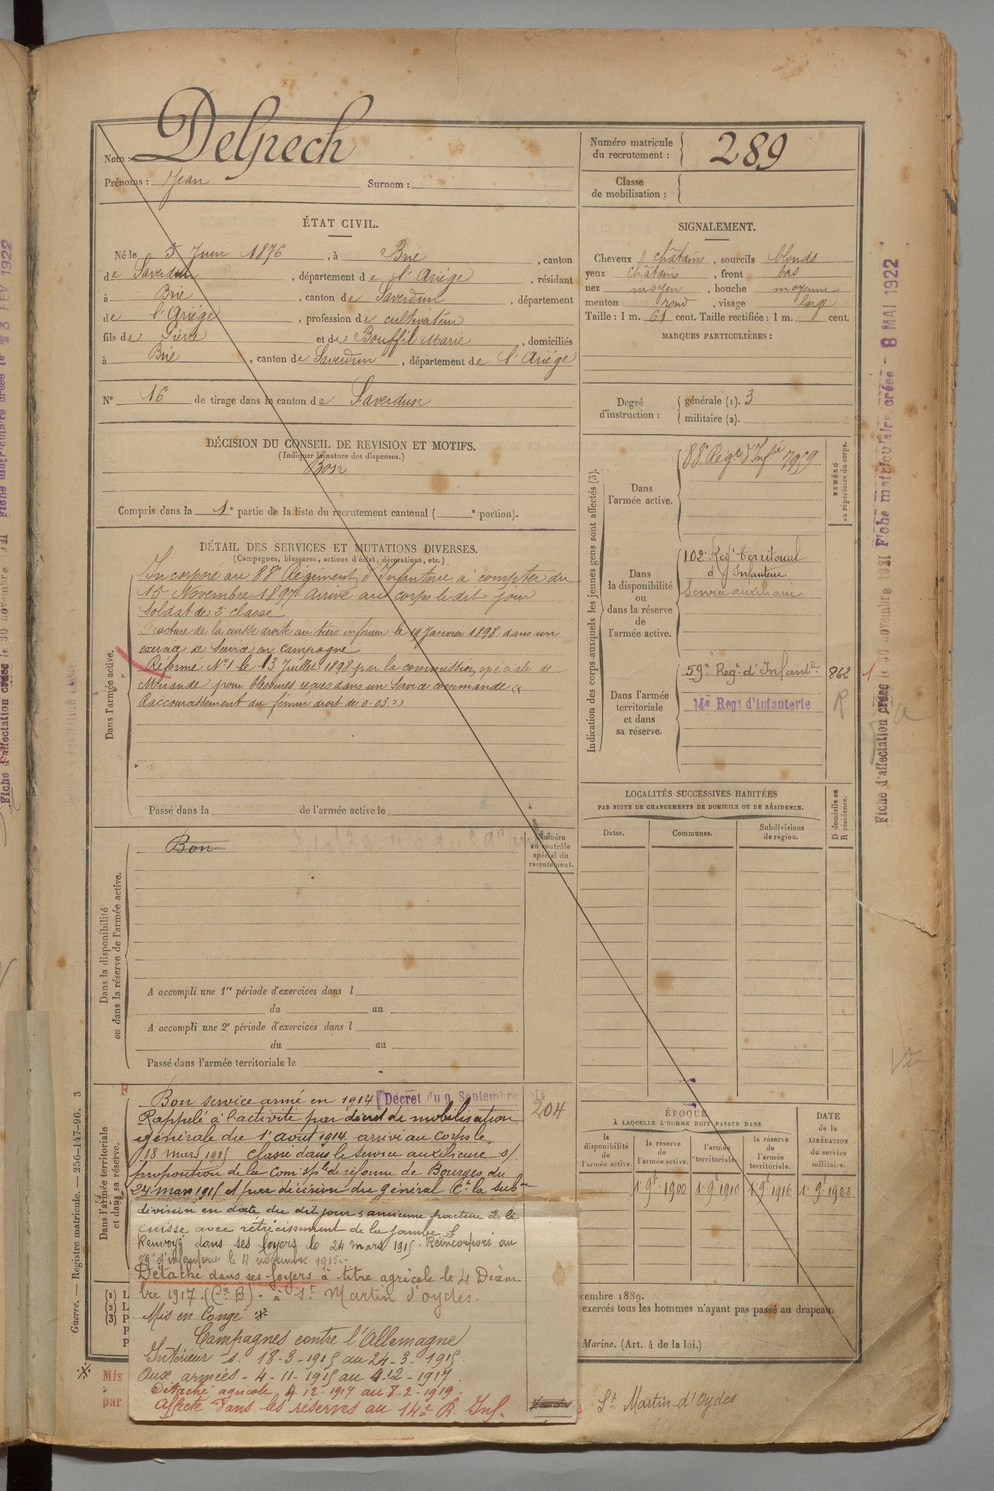 Nom : Delpech
Prénoms : Jean Surnom :
Numéro matricule du recrutement : 289
Classe de mobilisation :
ÉTAT CIVIL.
Né le 5 Juin 1876, à Brie, canton
de Saverdun, département de l'Ariège, résidant
à Brie, canton de Saverdun, département
de l'Ariège, profession de cultivateur
fils de Pierre et de Bouffil Marie, domiciliés
à Brie, canton de Saverdun, département de l'Ariège
N° 16 de tirage dans le canton de Saverdun
SIGNALEMENT.
Cheveux châtains, sourcils blonds
yeux châtains, front bas
nez moyen, bouche moyenne
menton rond, visage large
Taille : 1 m. 61 cent. Taille rectifiée : 1 m. cent.
MARQUES PARTICULIÈRES :
Degré d'instruction : générale (1). 3
militaire (2).
DÉCISION DU CONSEIL DE REVISION ET MOTIFS.
(Indiquer la nature des dispenses.)
Bon
Compris dans la 1e partie de la liste du recrutement cantonal ( e portion).
DÉTAIL DES SERVICES ET MUTATIONS DIVERSES.
(Campagnes, blessures, actions d'éclat, décorations, etc.)
Dans l'armée active.
Incorporé au 88e Régiment d'Infanterie à compter du
15 Novembre 1897. Arrivé au corps le dit jour
Soldat de 2e classe
Fracture de la cuisse droite au tiers inférieur le 19 Janvier 1898 dans un
exercice de Service en campagne
Réformé N°1 le 13 Juillet 1898 par la commission spéciale de
Mirande pour blessures reçues dans un Service commandé "
Raccourcissement du fémur droit de 0.03 ")
Passé dans la de l'armée active le
Indication des corps auxquels les jeunes gens sont affectés (3).
NUMÉRO au répertoire du corps.
Dans l'armée active.
88e Régt d'Infie 7959
Dans la disponibilité ou dans la réserve de l'armée active.
102e Regt territorial
d'Infanterie
Service auxiliaire
Dans l'armée territoriale et dans sa réserve.
59e Regt d'Infant 862
14e Regt d'Infanterie R
LOCALITÉS SUCCESSIVES HABITÉES
PAR SUITE DE CHANGEMENTS DE DOMICILE OU DE RÉSIDENCE.
Dates. Communes. Subdivisions de région.
D domicile ou R résidence.
Numéro au contrôle spécial du recrutement.
Dans la disponibilité ou dans la réserve de l'armée active.
Bon
A accompli une 1re période d'exercices dans l
du au
A accompli une 2e période d'exercices dans l
du au
Passé dans l'armée territoriale le
Dans l'armée territoriale et dans sa réserve.
Bon service armé en 1914 Décret du 9 Septembre
204
Rappelé à l'activité par décret de mobilisation
générale du 1er août 1914. arrivé au Corps le
18 mars 1915 classé dans le service auxiliaire s/
proposition de la Com. sple de réforme de Bourges du
24 mars 1915 et par décision du général Ct la sub
division en date du dit jour : ancienne fracture de la
cuisse avec rétrécissement de la jambe
Renvoyé dans ses foyers le 24 mars 1915. Réincorporé au
59e d'infanterie le 11 novembre 1915.
Détaché dans ses foyers à titre agricole le 4 Décem
bre 1917 (Cie B). à St Martin d'oydes.
Mis en Congé
Campagnes contre l'Allemagne
Intérieur s. 18-3-1915 au 24-3-1915
aux armées - 4-11-1915 au 4-12-1917
Détaché agricole 4 12-1917 au 8-2-1919.
Affecté dans les réserves au 14e R. Inf.
ÉPOQUE
À LAQUELLE L'HOMME DOIT PASSER DANS
la disponibilité de l'armée active.
la réserve de l'armée active.
l'armée territoriale.
la réserve de l'armée territoriale.
DATE DE LA LIBÉRATION du service militaire.
1er 9e 1900 1er 9e 1910 1er 9e 1916 1er 9e 1922
cembre 1889.
exercés tous les hommes n'ayant pas passé au drapeau.
Marine. (Art. 4 de la loi.)
Mis
par
St Martin-d'Oydes
Guerre. — Registre matricule. — 256-147-96. 3
Fiche d'affectation créée le 30 novembre 1921 Fiche matriculaire créée - 8 MAI 1922